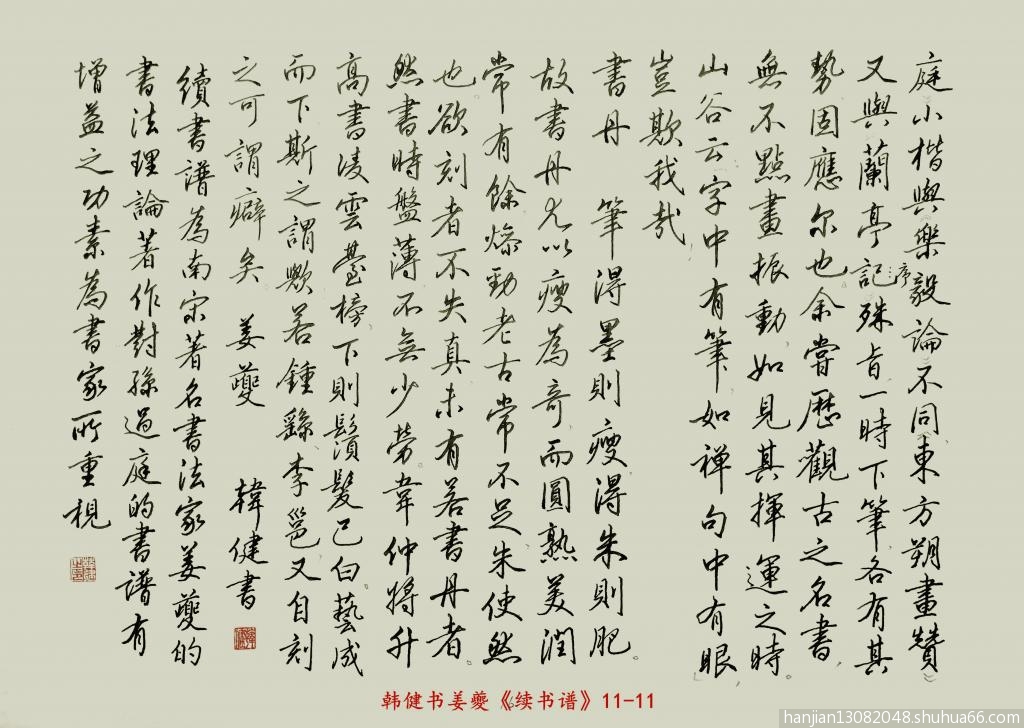 庭小楷與樂毅論不同東方朔畫贊
又與蘭亭記序殊旨一時下筆各有其
勢固應尔也余嘗歷觀古之名書
無不點畫振動如見其揮運之時
山谷云字中有筆如禅句中有眼
豈欺我哉
書丹 筆得墨則瘦得朱則肥
故書丹尤以瘦為奇而圓熟美潤
常有餘燥勁老古常不足朱使然
也欲刻者不失真未有若書丹者
然書時盤薄不無少勞韋仲將升
高書淩雲臺榜下則鬚髮已白藝成
而下斯之謂歟若鍾繇李邕又自刻
之可謂癖矣 姜夔 韓健書
續書譜為南宋著名書法家姜夔的
書法理論著作對孫過庭的書譜有
增益之功素為書家所重視
韩健书姜夔《续书谱》11-11
hanjian13082048.shuhua66.com